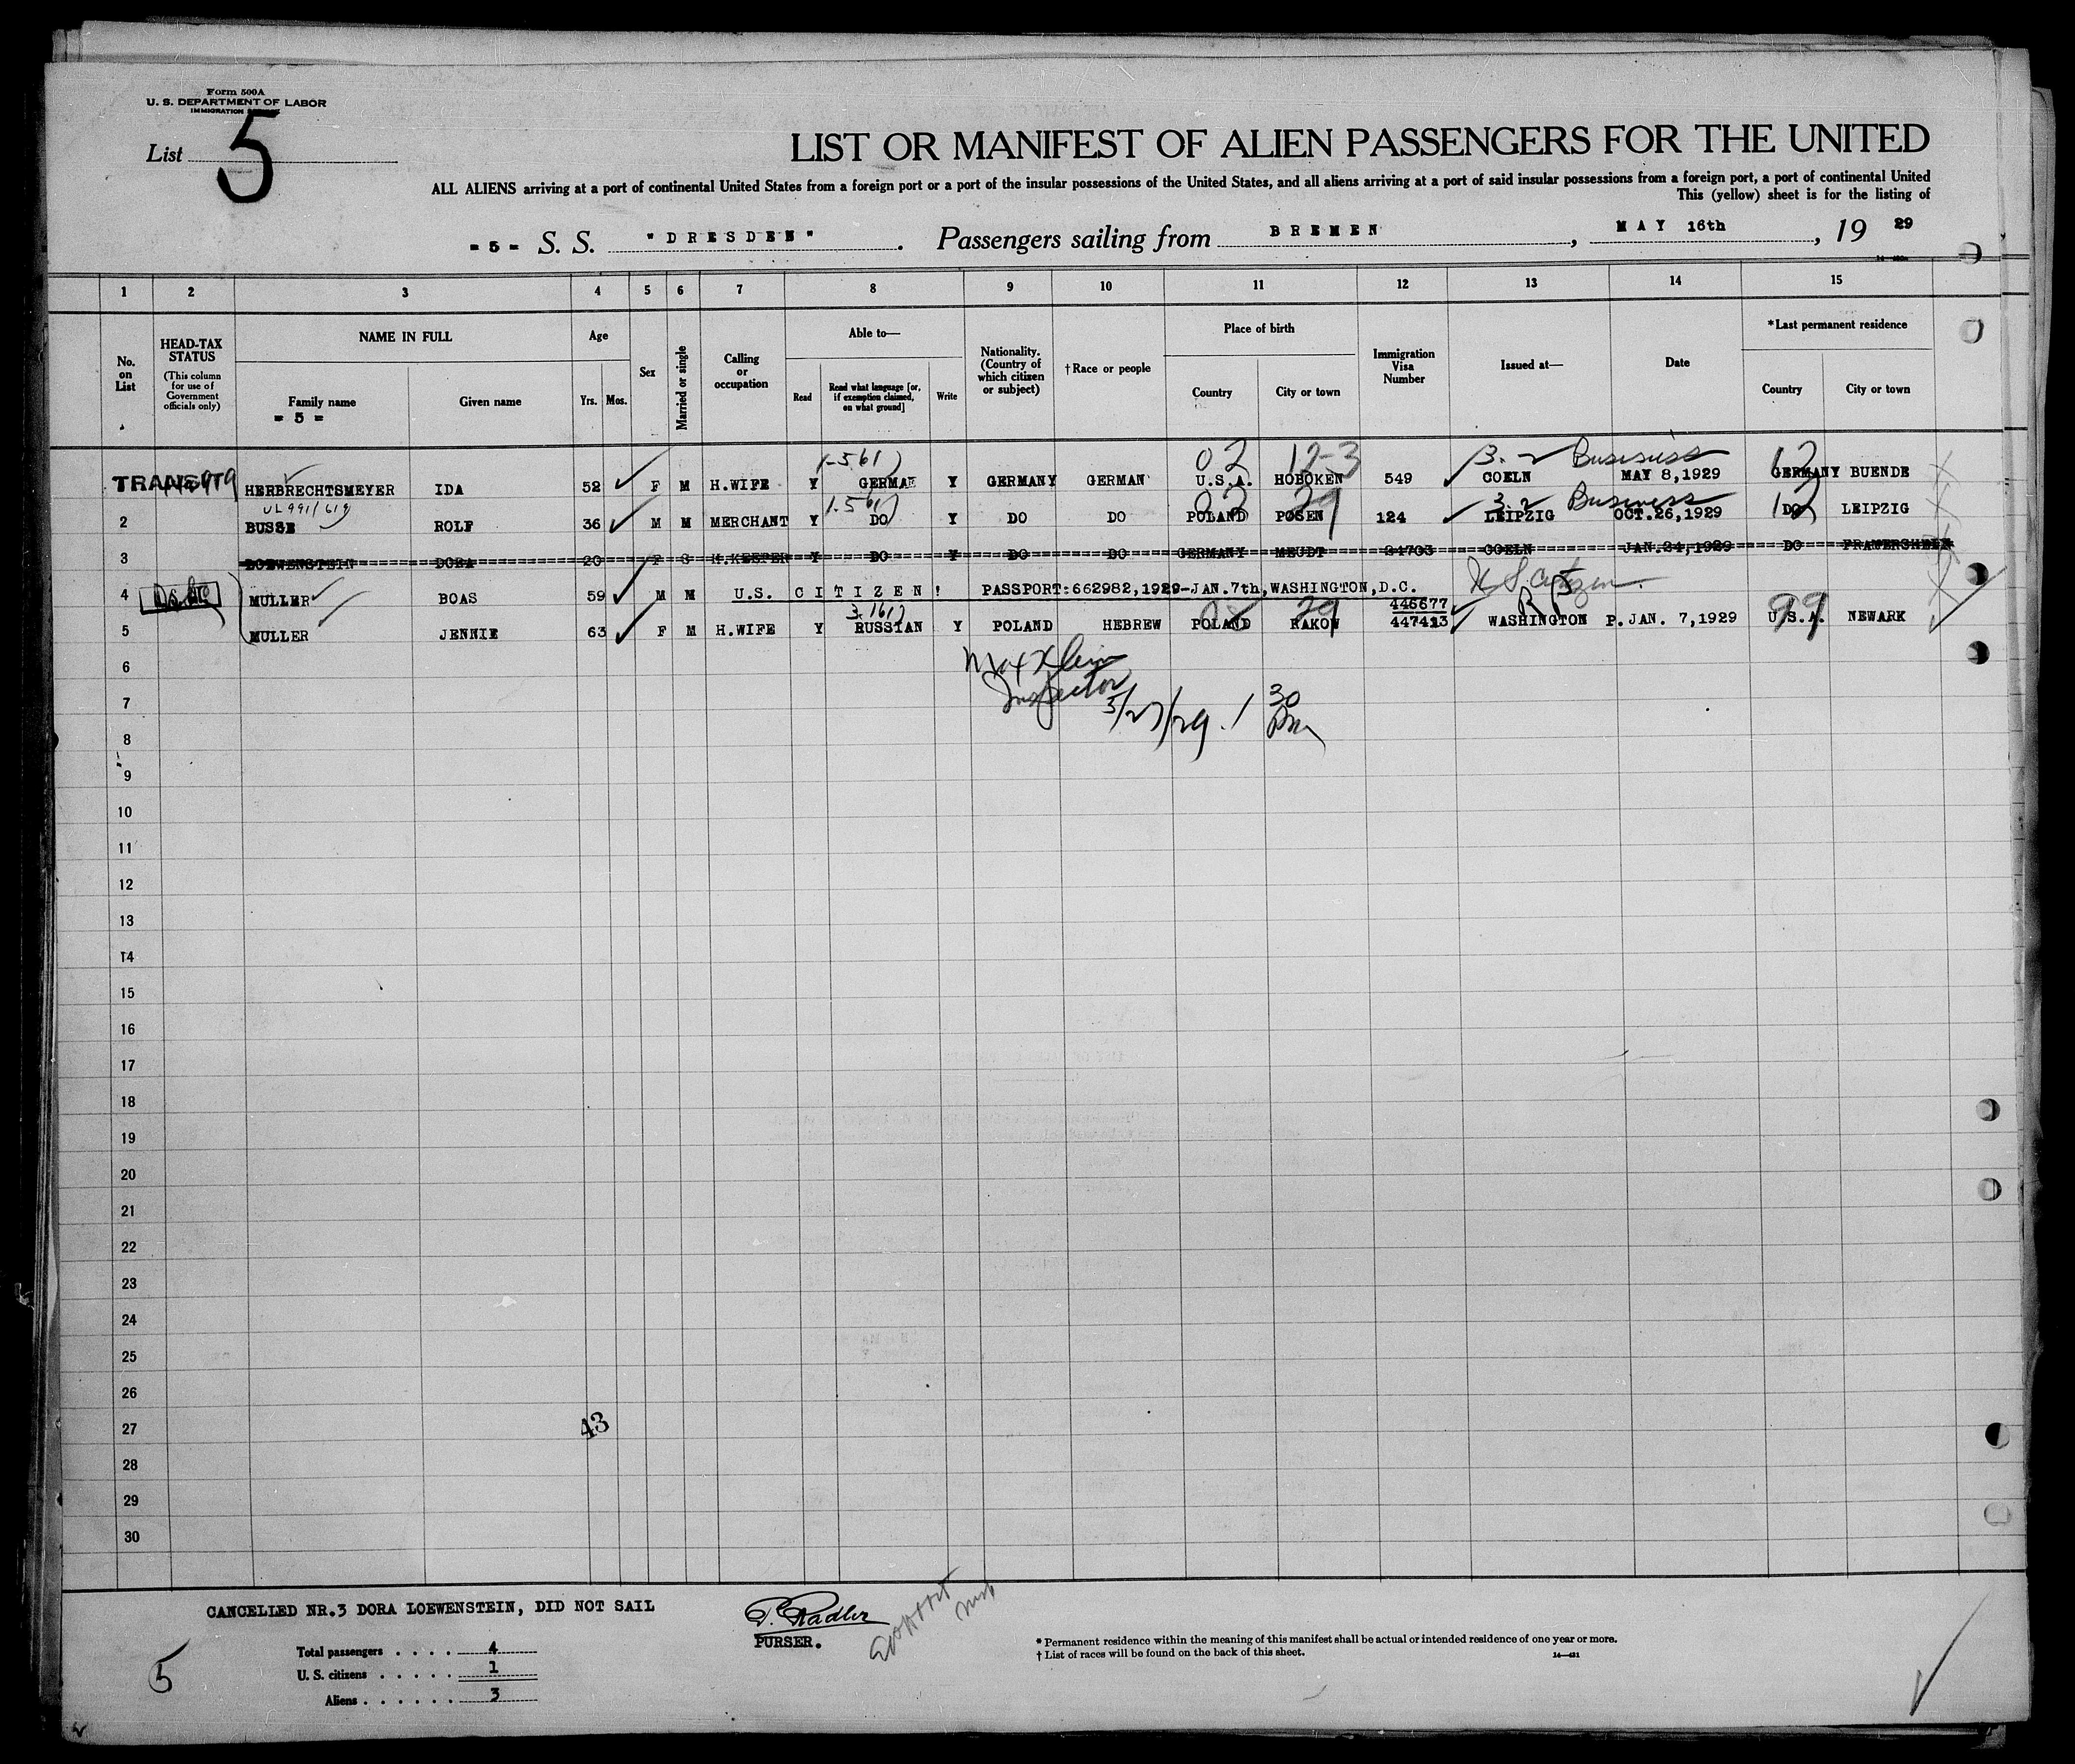 Form 500A
U. S. DEPARTMENT OF LABOR
IMMIGRATION
List 5
LIST OR MANIFEST OF ALIEN PASSENGERS FOR THE UNITED
ALL ALIENS arriving at a port of continental United States from a foreign port or a port of the insular possessions of the United States, and all aliens arriving at a port of said insular possessions from a foreign port, a port of continental United
This (yellow) sheet is for the listing of
= 5 = S. S. "DRESDEN". Passengers sailing from BREMEN, MAY 16th, 19 29
1 2 3 4 5 6 7 8 9 10 11 12 13 14 15
No. on List
HEAD-TAX STATUS (This column for use of Government officials only)
NAME IN FULL
Family name
= 5 =
Given name
Age
Yrs. Mos.
Sex
Married or single
Calling or occupation
Able to—
Read
Read what language [or, if exemption claimed, on what ground]
Write
Nationality. (Country of which citizen or subject)
† Race or people
Place of birth
Country
City or town
Immigration Visa Number
Issued at—
Date
*Last permanent residence
Country
City or town
1-561) 02 12-3 3-2 Business 12
TRANSIT HERBRECHTSMEYER IDA 52 F M H.WIFE Y GERMAN Y GERMANY GERMAN U.S.A. HOBOKEN 549 COELN MAY 8,1929 GERMANY BUENDE
UL991/619 1-561) 02 29 3-2 Business 12
2 BUSSE ROLF 36 M M MERCHANT Y DO Y DO DO POLAND POSEN 124 LEIPZIG OCT.26,1929 DO LEIPZIG
3 LOEWENSTEIN DORA 20 F S H.KEEPER Y DO Y DO DO GERMANY MEUDT 24703 COELN JAN.24,1929 DO FRAMERSHEIM
4 MULLER BOAS 59 M M U.S. CITIZEN! PASSPORT:662982,1929-JAN.7th,WASHINGTON,D.C. U S Citizen
3-161) 29 446677 RP 99
5 MULLER JENNIE 63 F M H.WIFE Y RUSSIAN Y POLAND HEBREW POLAND RAKOW 447413 WASHINGTON P.JAN. 7,1929 U.S.A. NEWARK
6 Max Klein
Inspector
7 5/27/29. 1 30 PM
8
9
10
11
12
13
14
15
16
17
18
19
20
21
22
23
24
25
26
27 43
28
29
30
CANCELLED NR.3 DORA LOEWENSTEIN, DID NOT SAIL
P. Radler
PURSER.
Total passengers . . . . 4
U. S. citizens . . . . . 1
Aliens . . . . . . 3
5
* Permanent residence within the meaning of this manifest shall be actual or intended residence of one year or more.
† List of races will be found on the back of this sheet.
14—421